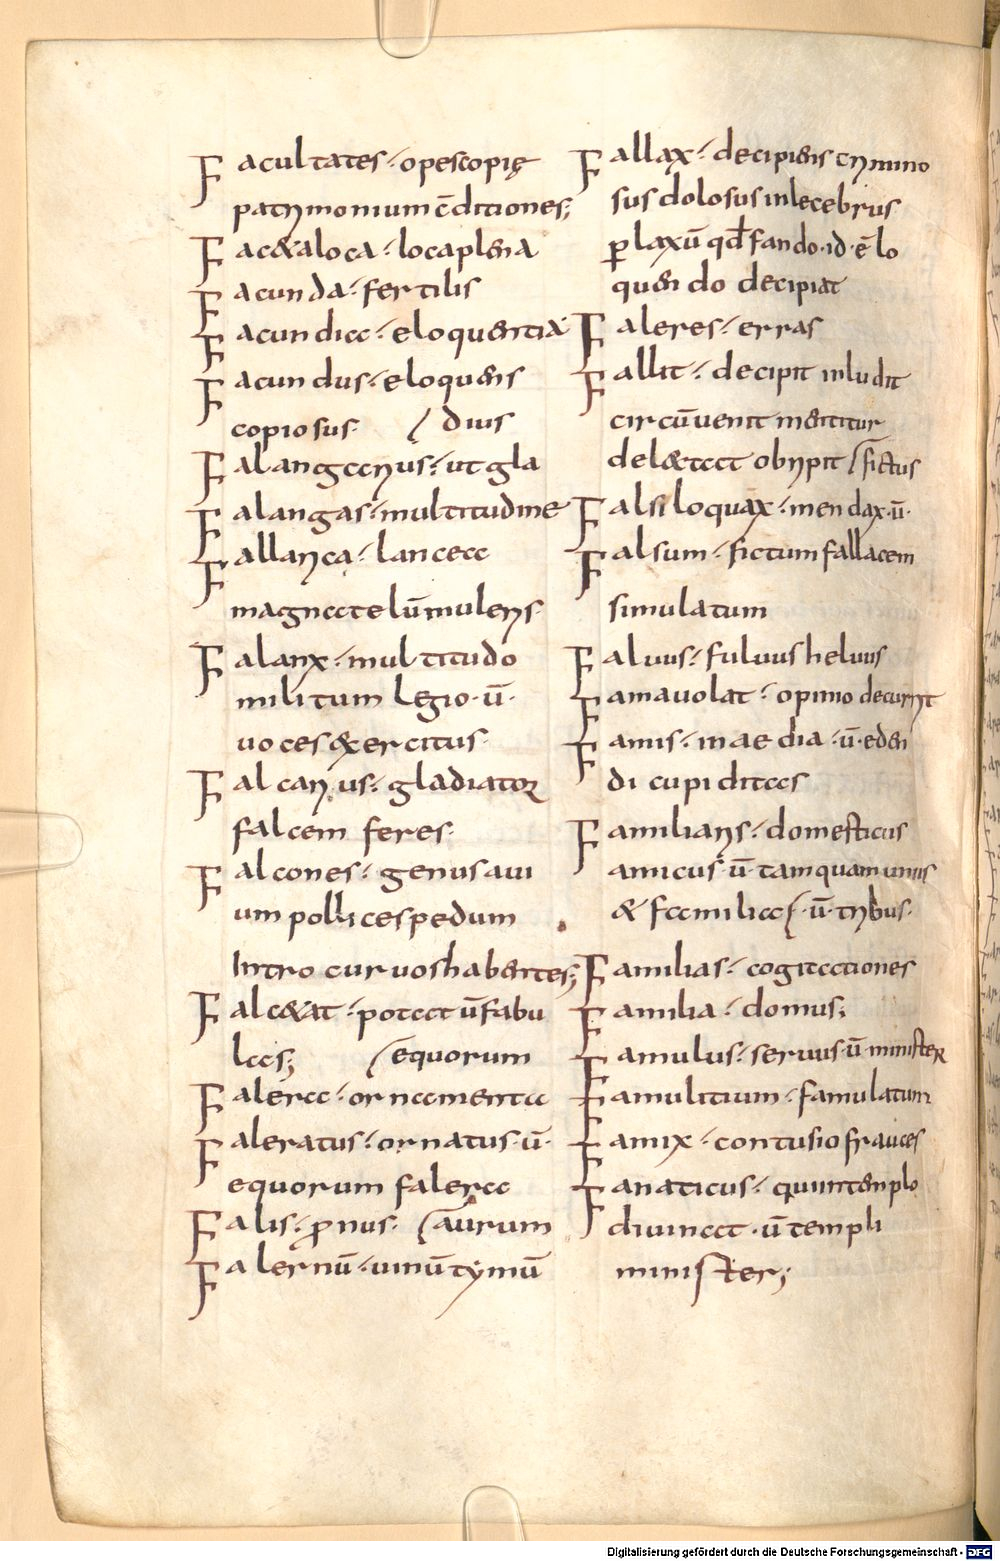 Facultates · opes copię
patrimonium cōditiones;
Fac&a loca · loca plena
Facunda · fertilis
Facundia · eloquentia
Facundus · eloquens
copiosus · / dius
Falangarius · ut gla
Falangas · multitudine
Fallarica · lancea
magna telū mulieris
Falanx · multitudo
militum legio · ū ·
uoces &xercitus ·
Falcarius · gladiator
falcem feres ·
Falcones · genus aui
um pollices pedum
Intro curuos habentes;
Falc&at · potat ū fabu
las; / equorum
Falera · ornamenta
Faleratus · ornatus · ū ·
equorum falera
Falis · pronus · / aurum
Falernū · uinū
Fallax · decipiens crimino
sus dolosus inlecebrus
p laxū qđ fando · id · ē lo
quendo decipiat
Faleres · erras
Fallit · decipit inludit
circūuenit mentitur
delectat obripit / fictus
Falsiloquax · mendax · ū ·
Falsum · fictum fallacem
simulatum
Faluus · fuluus heluus
Fama uolat · opinio decurrit
Famis · inaedia · ū · eden
di cupiditas
Familiaris · domesticus
amicus · ū · tamquam unus
& familia / · ū · tribus ·
Familias · cogitationes
Familia · domus;
Famulus · seruus · ū · minister
Famulitium · famulatum
Famix · contusio frauces
Fanaticus · qui in templo
diuinat · ū templi
minister;
Digitalisierung gefördert durch die Deutsche Forschungsgemeinschaft - DFG